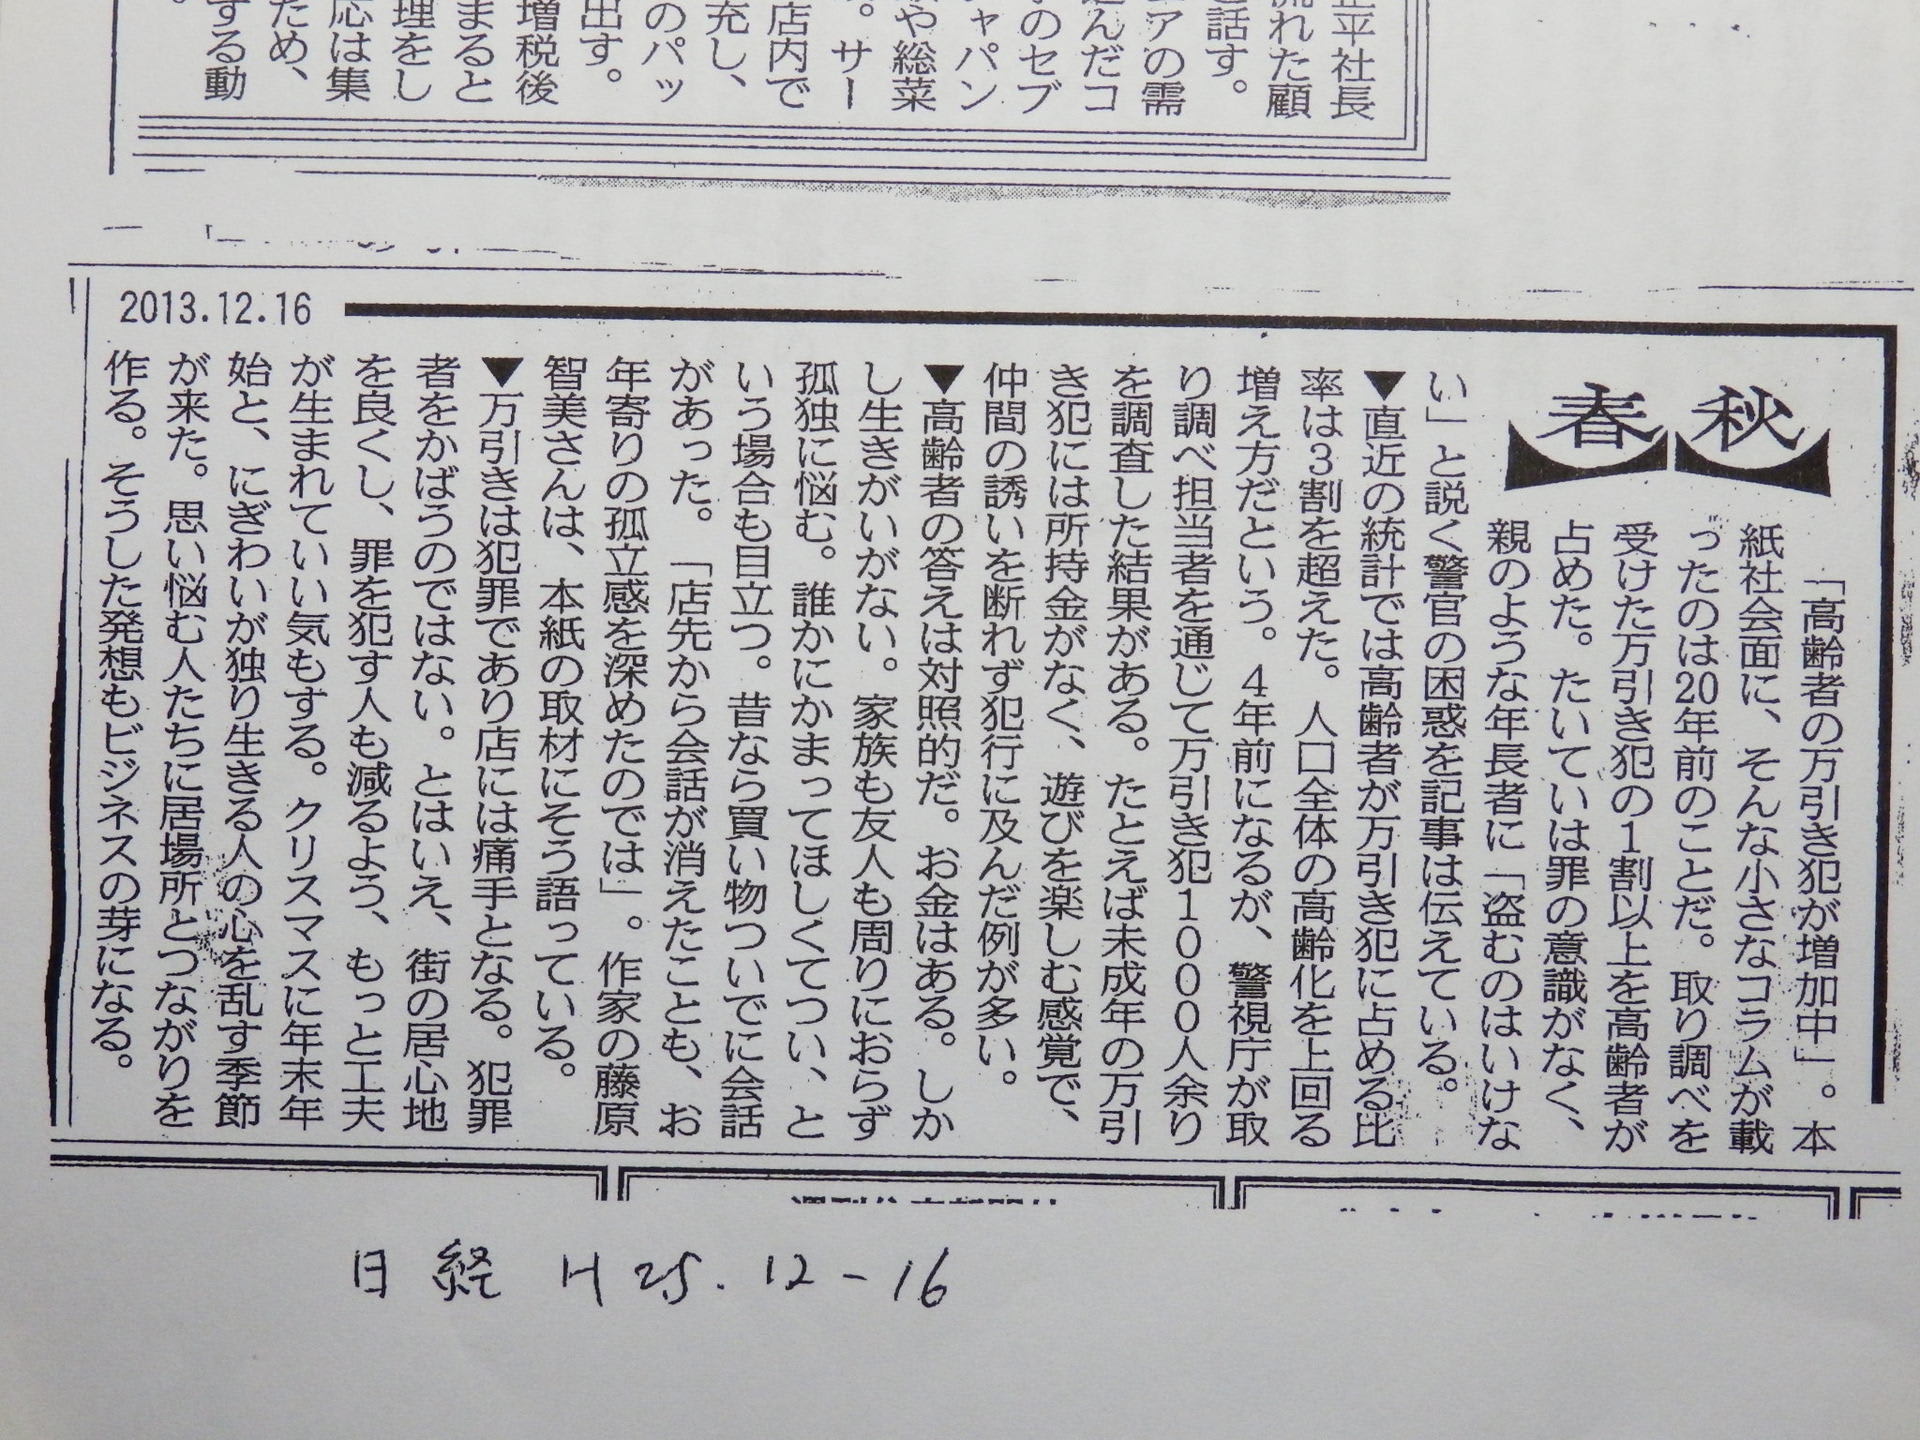 平社長
れた顧
話す。
アの需
んだコ
のセブ
ャパン
や総菜
。サー
店内で
充し、
のパッ
出す。
増税後
まると
理をし
応は集
ため、
する動
2013.12.16
春秋
「高齢者の万引き犯が増加中」。本
紙社会面に、そんな小さなコラムが載
ったのは20年前のことだ。取り調べを
受けた万引き犯の1割以上を高齢者が
占めた。たいていは罪の意識がなく、
親のような年長者に「盗むのはいけな
い」と説く警官の困惑を記事は伝えている。
▼直近の統計では高齢者が万引き犯に占める比
率は3割を超えた。人口全体の高齢化を上回る
増え方だという。4年前になるが、警視庁が取
り調べ担当者を通じて万引き犯1000人余り
を調査した結果がある。たとえば未成年の万引
き犯には所持金がなく、遊びを楽しむ感覚で、
仲間の誘いを断れず犯行に及んだ例が多い。
▼高齢者の答えは対照的だ。お金はある。しか
し生きがいがない。家族も友人も周りにおらず
孤独に悩む。誰かにかまってほしくてつい、と
いう場合も目立つ。昔なら買い物ついでに会話
があった。「店先から会話が消えたことも、お
年寄りの孤立感を深めたのでは」。作家の藤原
智美さんは、本紙の取材にそう語っている。
▼万引きは犯罪であり店には痛手となる。犯罪
者をかばうのではない。とはいえ、街の居心地
を良くし、罪を犯す人も減るよう、もっと工夫
が生まれていい気もする。クリスマスに年末年
始と、にぎわいが独り生きる人の心を乱す季節
が来た。思い悩む人たちに居場所とつながりを
作る。そうした発想もビジネスの芽になる。
日経 H25.12-16